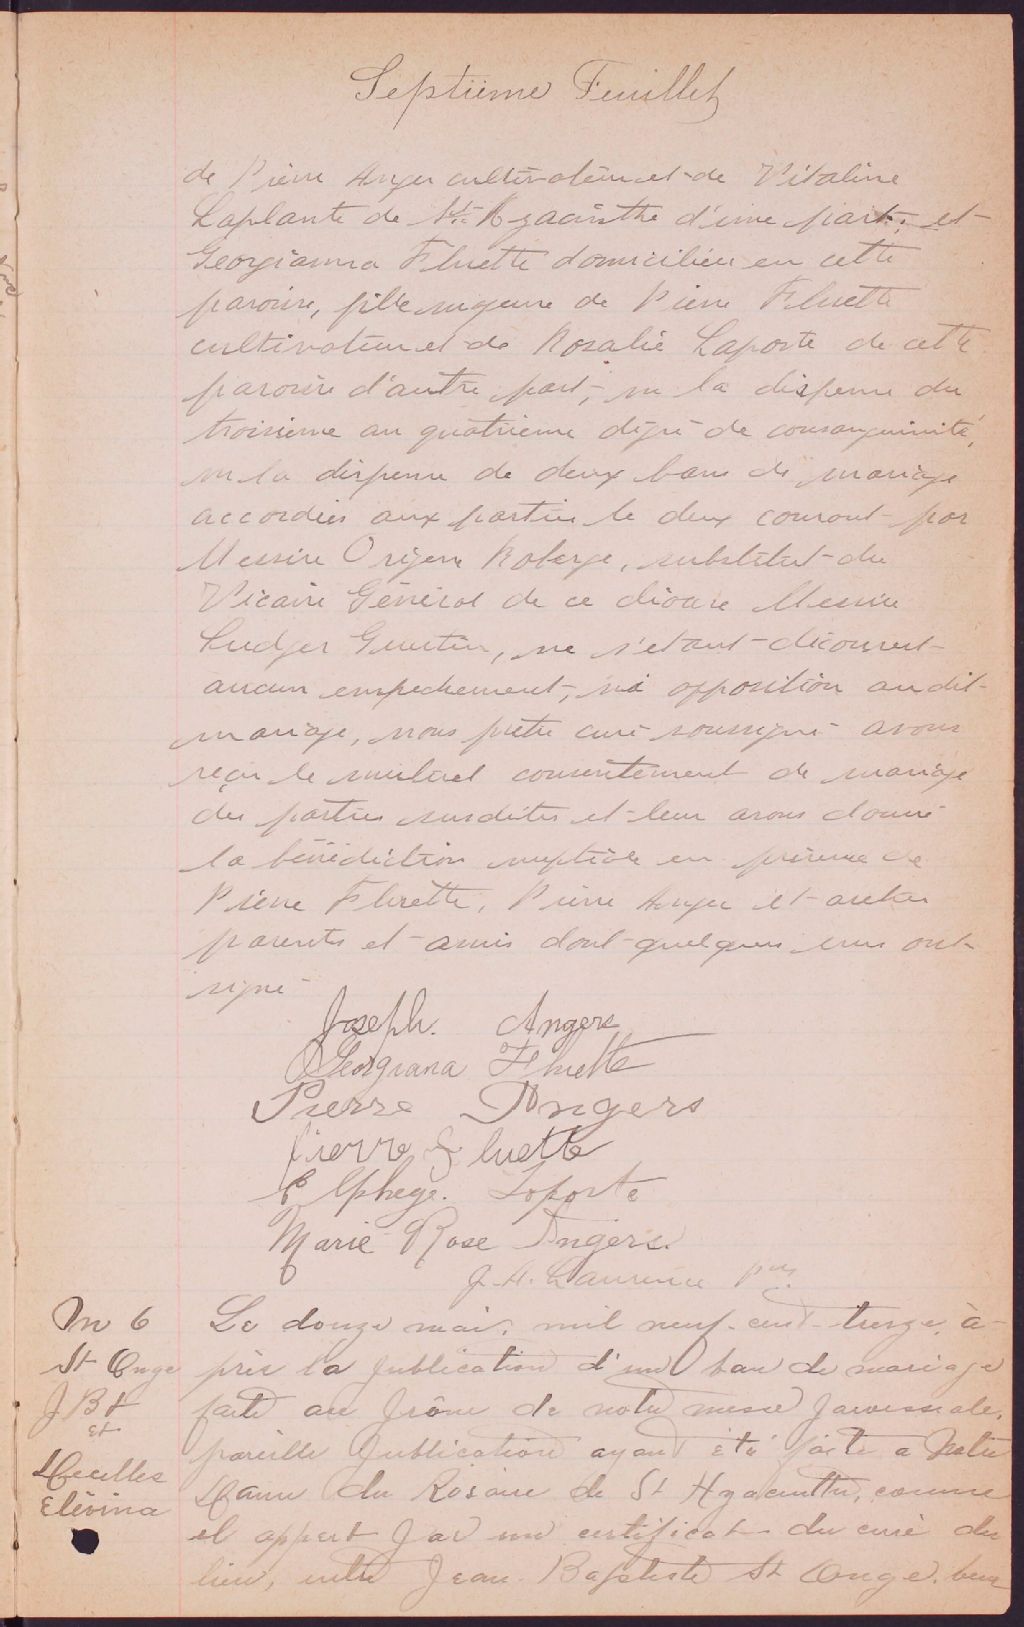 Septième Feuillet
de Pierre Anger cultivateur et de Vitaline
Laplante de St Hyacinthe d'une part; et
Georgianna Fluette domiciliée en cette
paroisse, fille majeure de Pierre Fluette
cultivateur et de Rosalie Laporte de cette
paroisse d'autre part, vu la dispense du
troisième au quatrième dégré de consanguinité,
vu la dispense de deux bans de mariage
accordées aux parties le deux courant par
Messire Origène Roberge, substitut du
Vicaire Général de ce diocèse Messire
Ludger Guertin, ne s'étant découvert
aucun empechement, ni opposition au dit
mariage, nous prêtre curé soussigné avons
reçu le mutuel consentement de mariage
des parties susdites et leur avons donné
la bénédiction nuptiale en présence de
Pierre Fluette, Pierre Anger et autres
parents et amis dont quelques uns ont
signé
Joseph. Angers
Georgiana Fluette
Pierre Angers
Pierre Fluette
Elphege. Laporte
Marie Rose Angers.
J. A. Laurence ptre
M 6
St Onge
J Bt
et
Hecelles
Elévina
Le douze mai, mil neuf-cent-treize, a-
près la publication d'un ban de mariage
faite au prône de notre messe paroissiale,
pareille publication ayant été faite a Notre
Dame du Rosaire de St Hyacinthe, comme
il appert par un certificat du curé du
lieu, entre Jean-Baptiste St Onge,